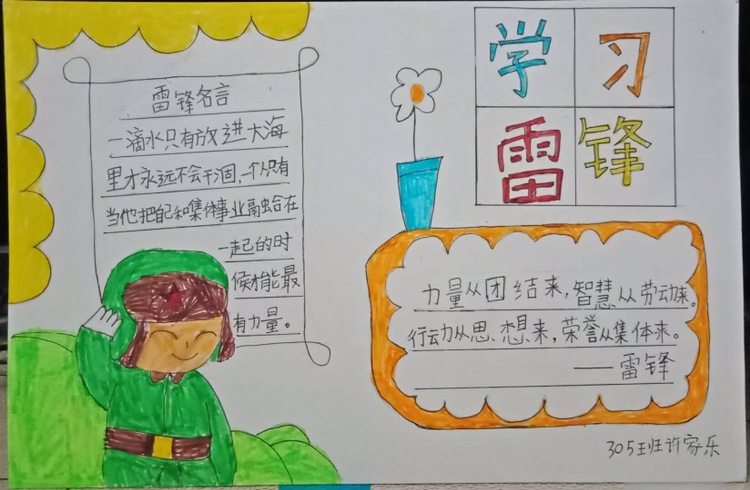 学习
雷锋
雷锋名言
一滴水只有放进大海
里才永远不会干涸,一个人只有
当他把自己和集体事业融合在
一起的时
候才能最
有力量。
力量从团结来,智慧从劳动来。
行动从思想来,荣誉从集体来。
——雷锋
305班许家乐